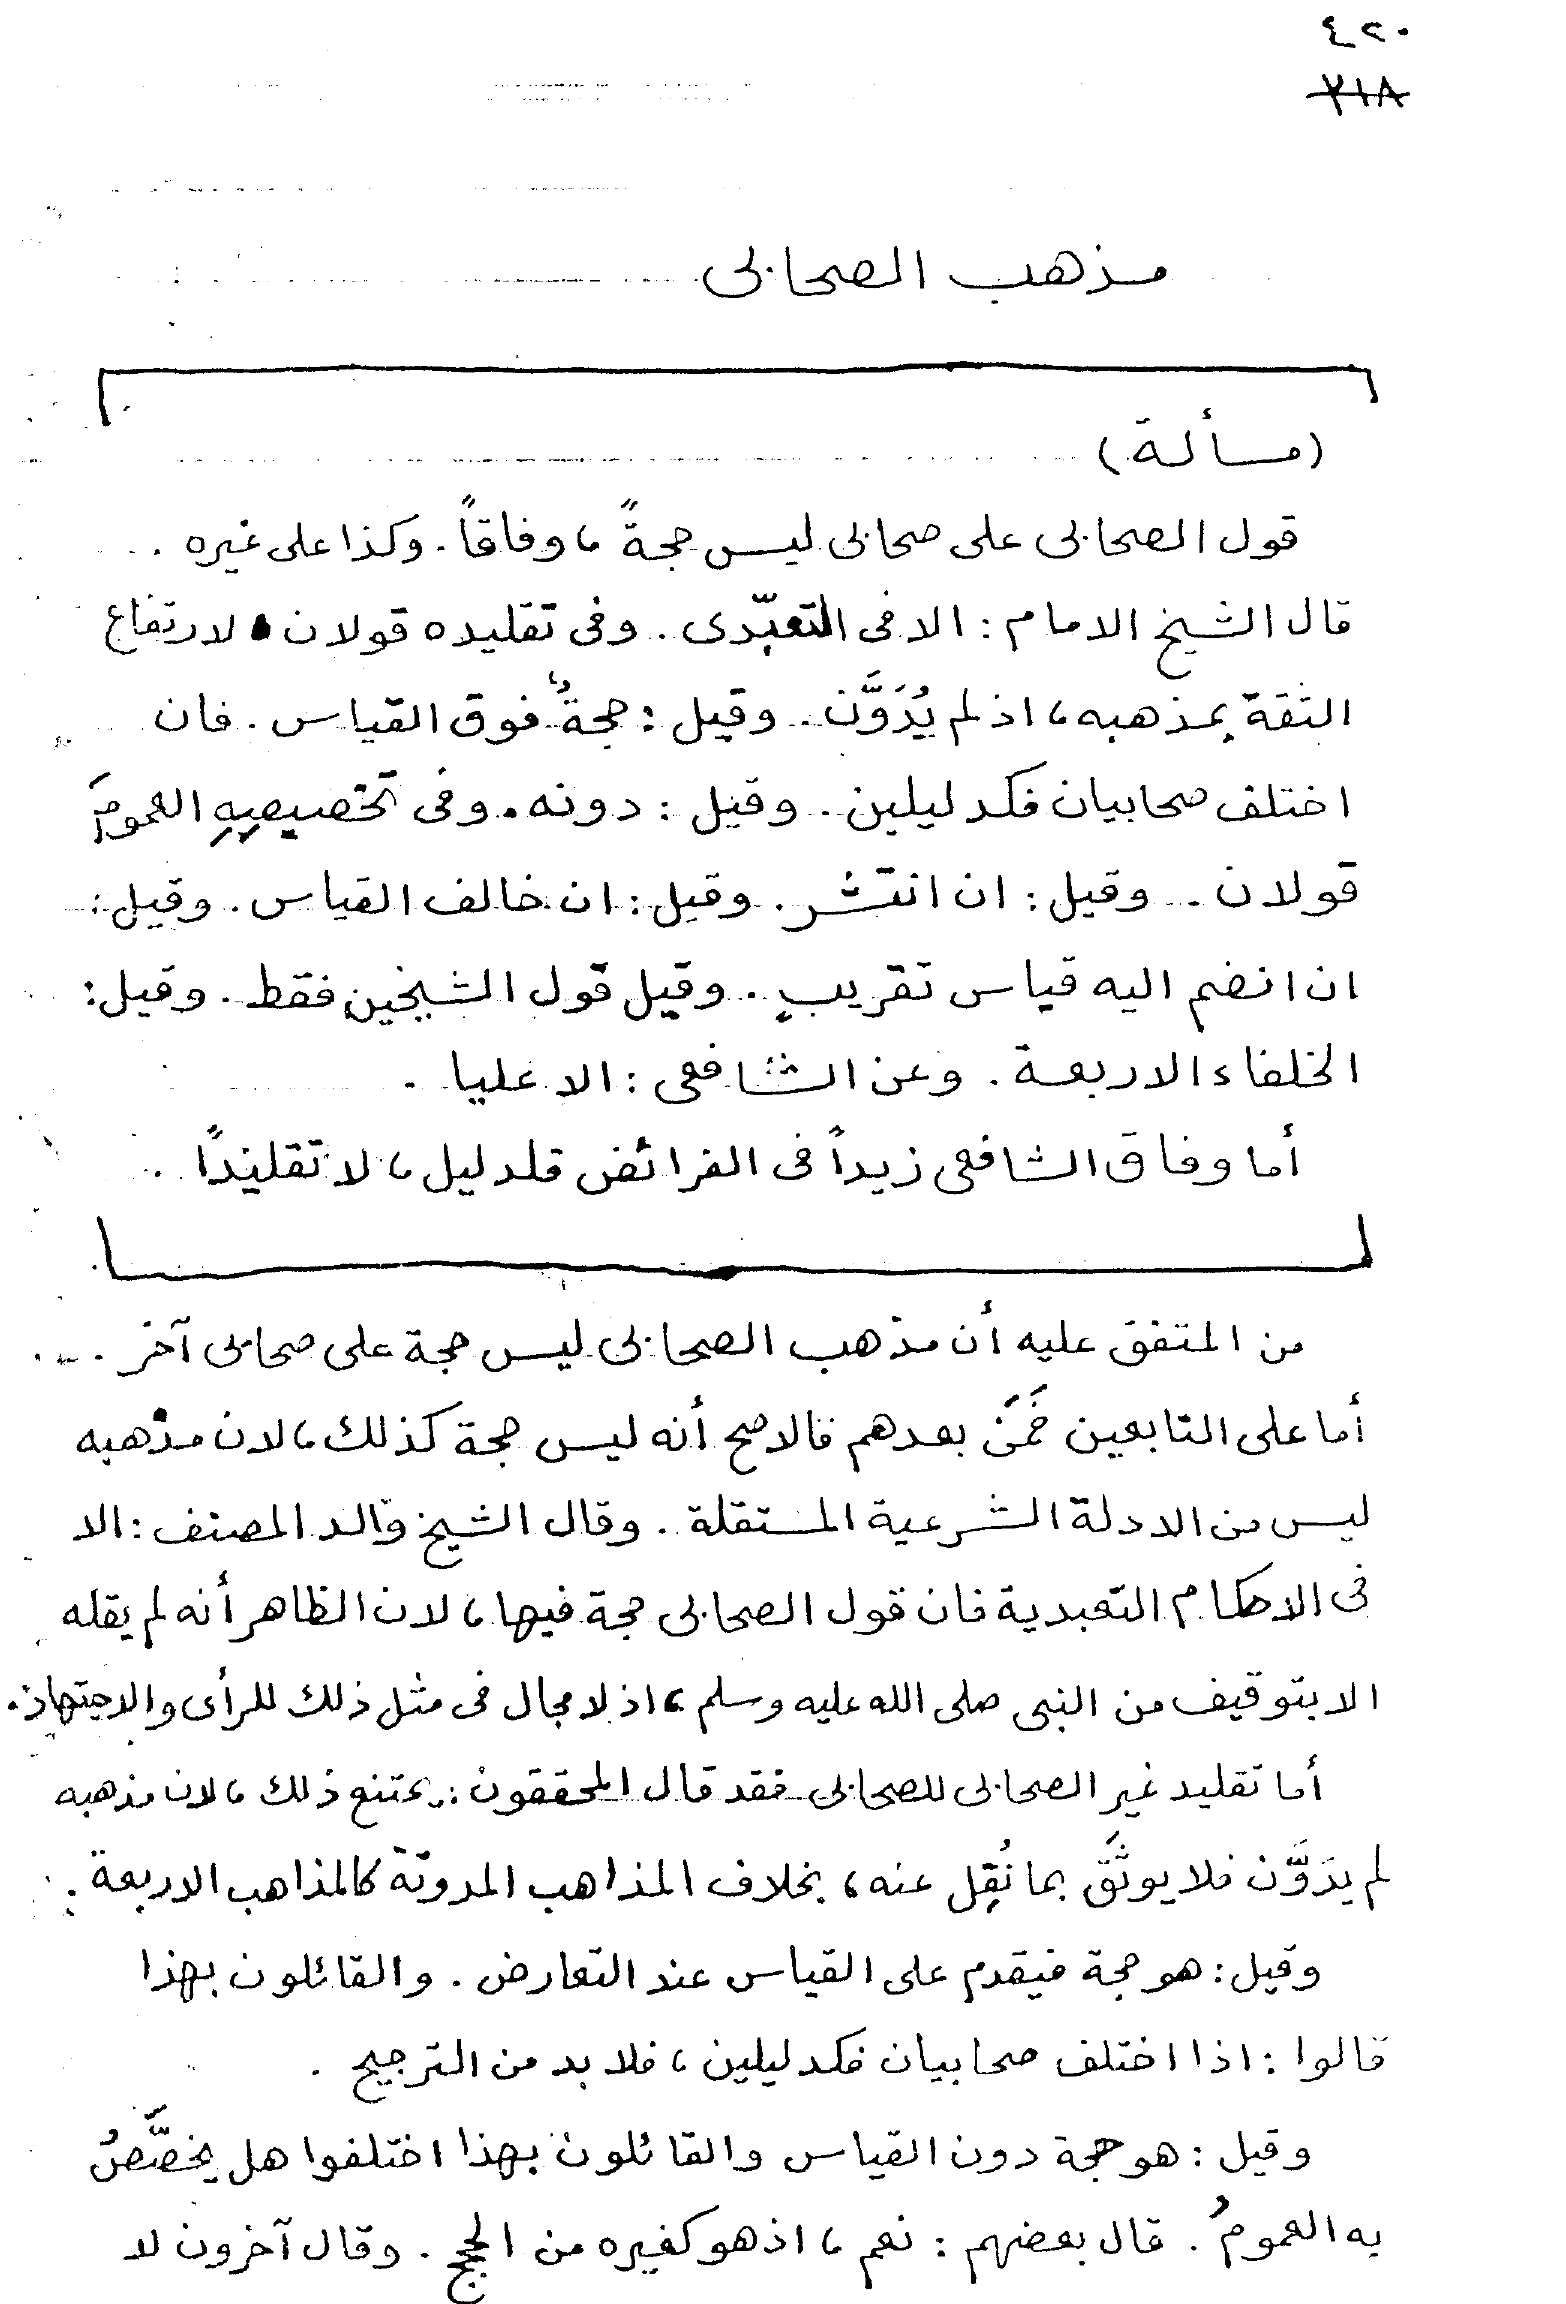 ٤٢٠
٧١٨
مذهب الصحابى
(مسألة)
قول الصحابى على صحابى ليس حجةً ، وفاقاً . وكذا على غيره .
قال الشيخ الامام : الا فى التعبّدى . وفى تقليده قولان لارتفاع
الثقة بمذهبه ، اذ لم يُدَوَّن . وقيل : حجةٌ فوق القياس . فان
اختلف صحابيان فكدليلين . وقيل : دونه . وفى تخصيصِهِ العمومَ
قولان . وقيل : ان انتشر . وقيل : ان خالف القياس . وقيل :
ان انضم اليه قياس تقريبٍ . وقيل قول الشيخين فقط . وقيل :
الخلفاء الاربعة . وعن الشافعى : الا عليا .
أما وفاق الشافعى زيداً فى الفرائض فلدليل ، لا تقليدًا .
من المتفق عليه أن مذهب الصحابى ليس حجة على صحابى آخر .
أما على التابعين فَمَنْ بعدهم فالاصح أنه ليس حجة كذلك ، لان مذهبه
ليس من الادلة الشرعية المستقلة . وقال الشيخ والد المصنف : الا
فى الاحكام التعبدية فان قول الصحابى حجة فيها ، لان الظاهر أنه لم يقله
الا بتوقيف من النبى صلى الله عليه وسلم ، اذ لا مجال فى مثل ذلك للرأى والاجتهاد .
أما تقليد غير الصحابى للصحابى فقد قال المحققون : يمتنع ذلك ، لان مذهبه
لم يدَوَّن فلا يوثَق بما نُقِل عنه ، بخلاف المذاهب المدونة كالمذاهب الاربعة .
وقيل : هو حجة فيقدم على القياس عند التعارض . والقائلون بهذا
قالوا : اذا اختلف صحابيان فكدليلين ، فلا بد من الترجيح .
وقيل : هو حجة دون القياس والقائلون بهذا اختلفوا هل يخصَّصُ
به العمومُ . قال بعضهم : نعم ، اذ هو كغيره من الحجج . وقال آخرون لا